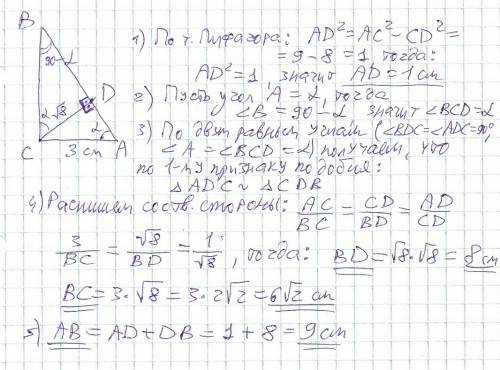 B
90-α
1) По т. Пифагора: AD² = AC² - CD² =
= 9 - 8 = 1, тогда:
AD² = 1, значит AD = 1 см
D
2√8
α
C 3 см A
2) Пусть угол A = α, тогда
∠B = 90 - α, значит ∠BCD = α
3) По двум равным углам (∠BDC = ∠ADC = 90°,
∠A = ∠BCD = α) получаем, что
по 1-му признаку подобия:
△ADC ~ △CDB
4) Распишем соотв. стороны: AC/BC = CD/BD = AD/CD
3/BC = √8/BD = 1/√8, тогда: BD = √8·√8 = 8 см
BC = 3·√8 = 3·2√2 = 6√2 см
5) AB = AD + DB = 1 + 8 = 9 см